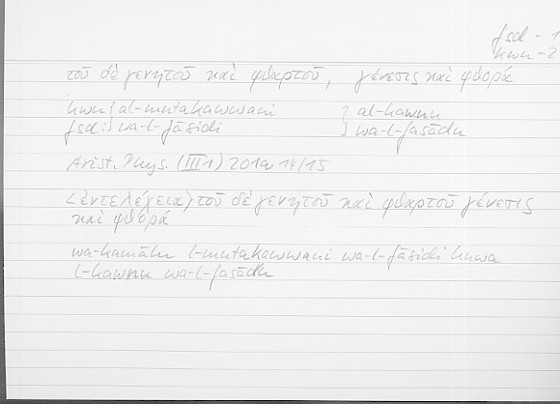 fsd - 1
kwn - 2
τοῦ δὲ γενητοῦ καὶ φθαρτοῦ, γένεσις καὶ φθορά
kwn: al-mutakawwani } al-kawnu
fsd: wa-l-fāsidi } wa-l-fasādu
Arist. Phys. (III 1) 201a 14/15
<ἐντελέχεια> τοῦ δὲ γενητοῦ καὶ φθαρτοῦ γένεσις
καὶ φθορά
wa-kamālu l-mutakawwani wa-l-fāsidi huwa
l-kawnu wa-l-fasādu